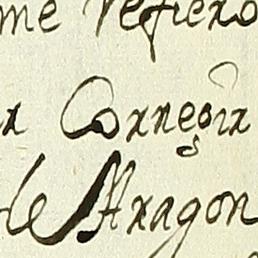 me refiero
Corregir
de Aragon